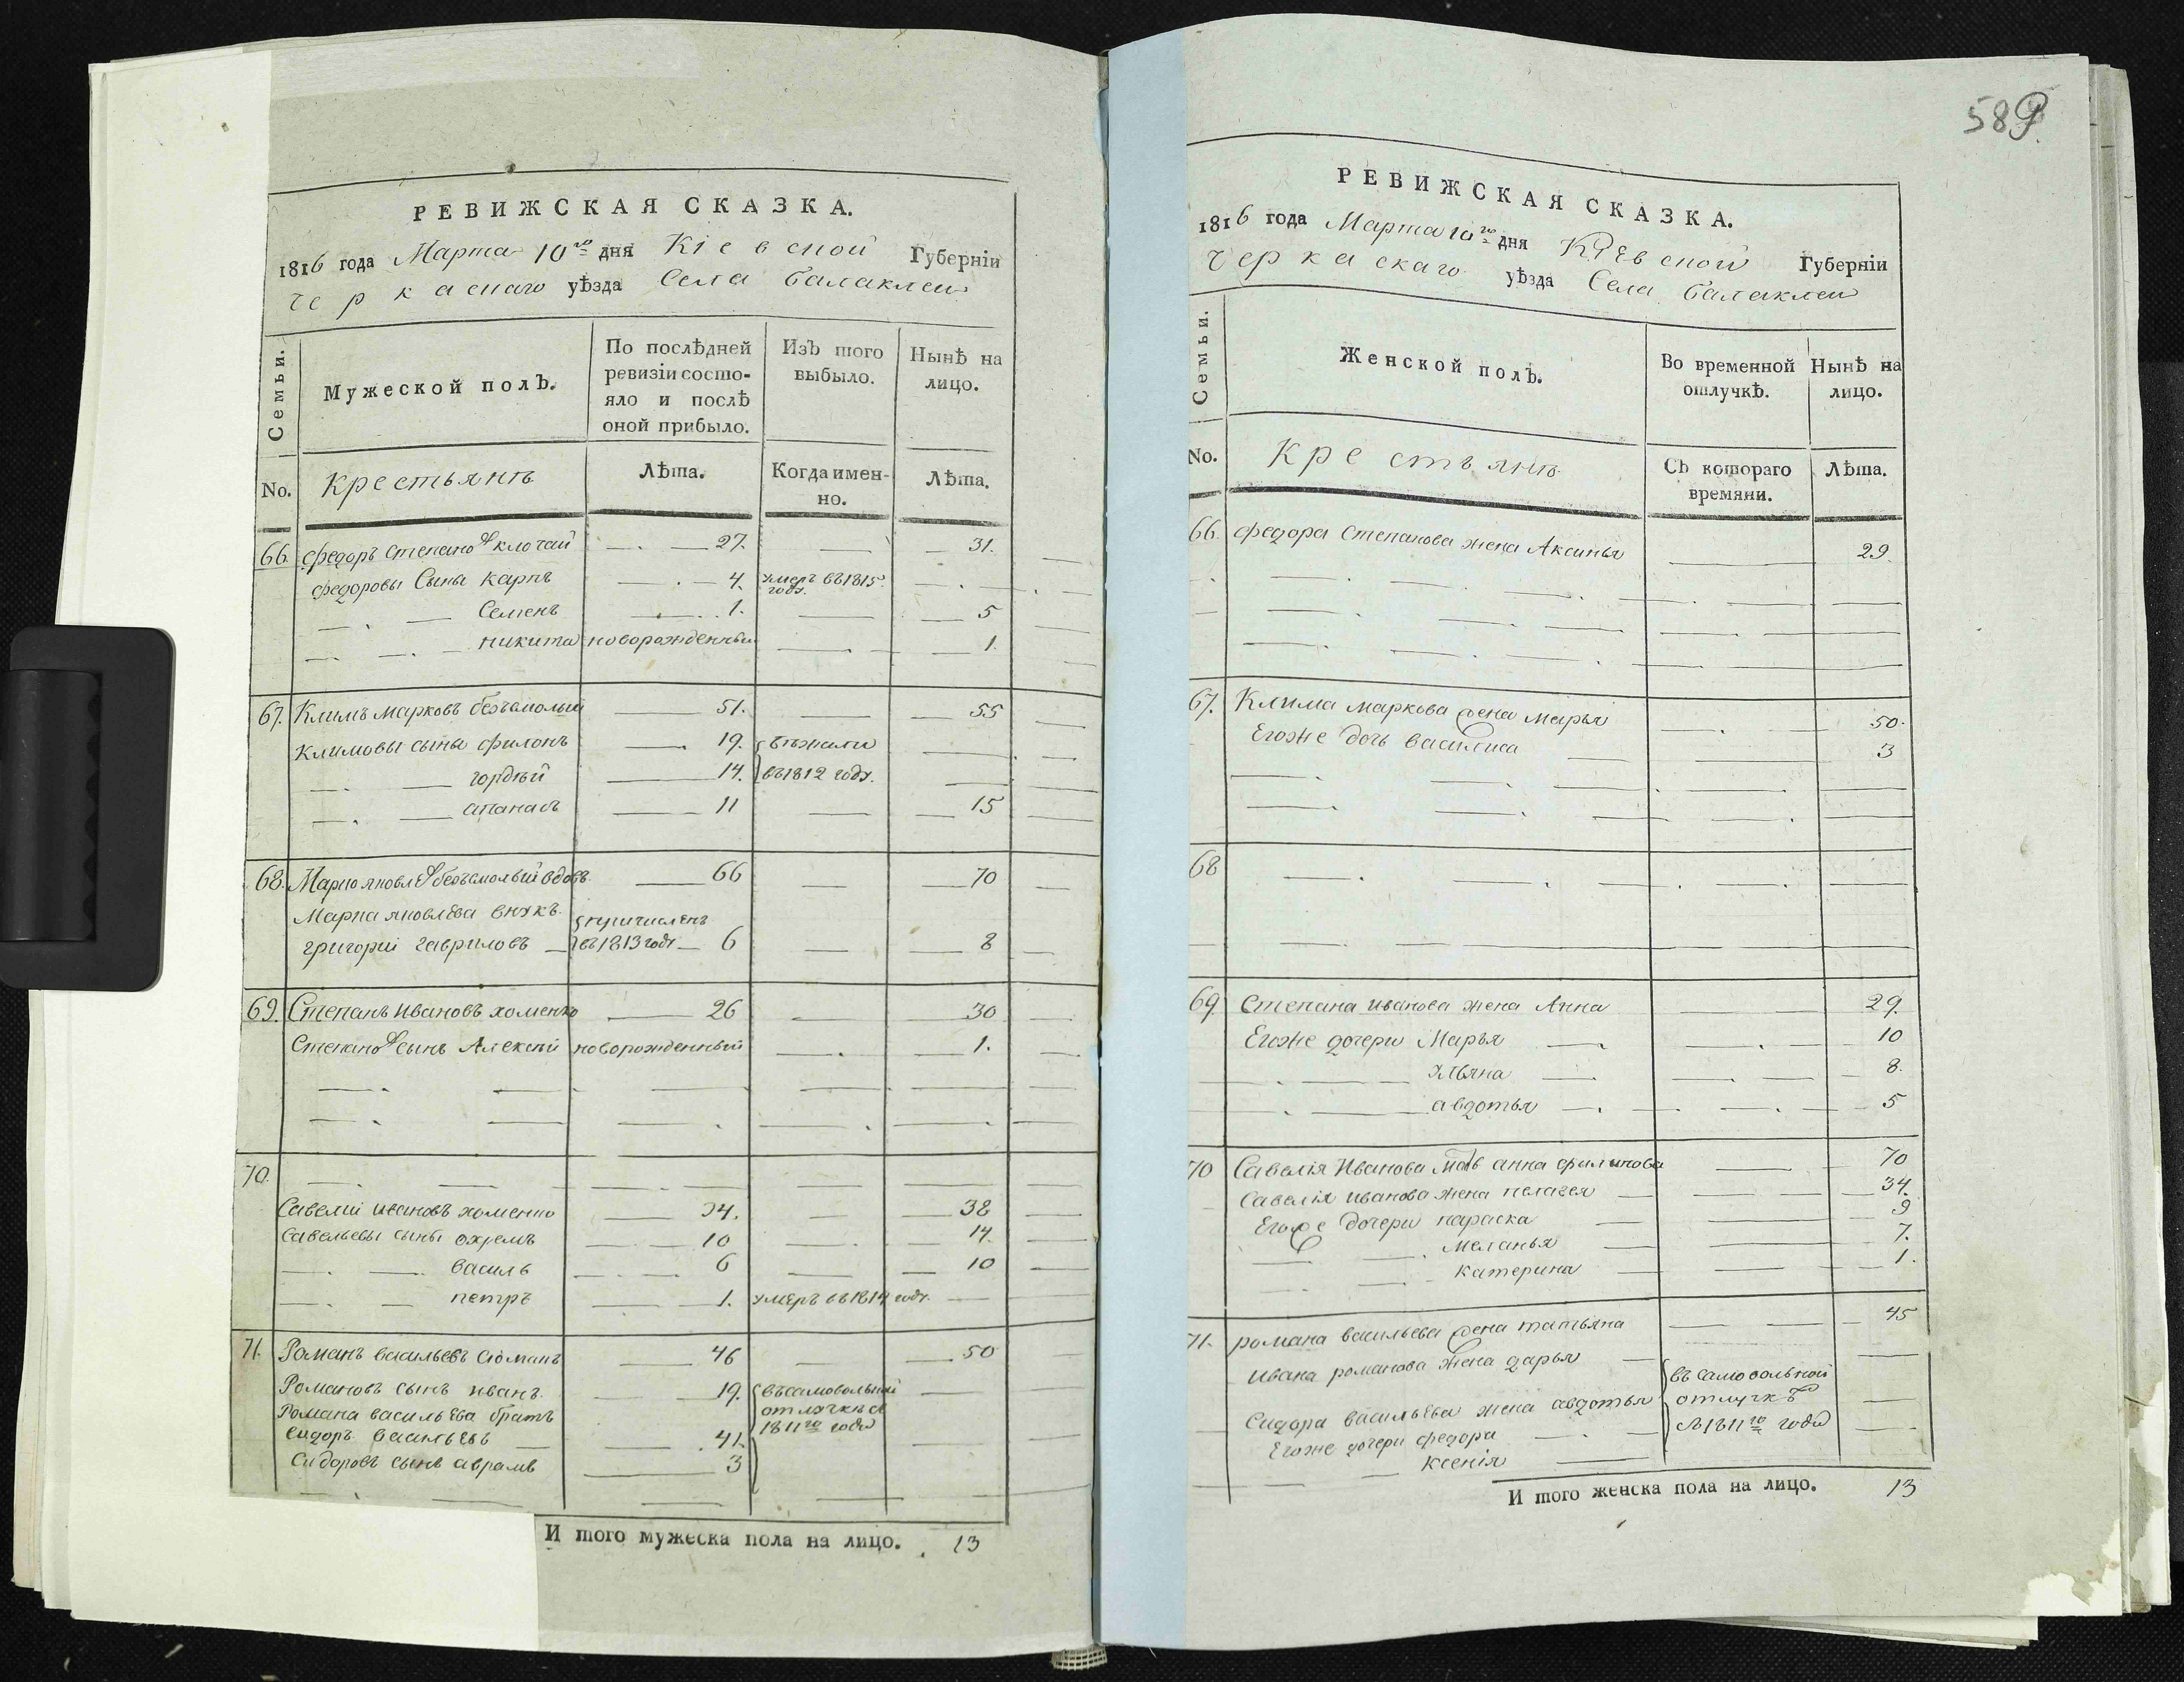 РЕВИЖСКАЯ СКАЗКА.
1816 года Марта 10го дня Кіевской Губерніи
Черкаскаго уѣзда Села Балаклеи
Семьи.
Мужеской полЪ.
По послѣдней ревизіи состояло и послѣ оной прибыло.
ИзЪ того выбыло.
Нынѣ на лицо.
No.
Крестьянъ
Лѣта.
Когда именно.
Лѣта.
66. федоръ Степановъ клочай 27. 31.
федоровы Сыны карпъ 4. умеръ въ 1815 году.
Семенъ 1. 5
никита новорожденный 1.
67. Климъ марковъ безъамолый 51. 55
климовы сыны филонъ 19. бѣжали
гордѣй 14. въ 1812 году.
апанасъ 11 15
68. Марко яковлевъ безъамолый вдовъ 66 70
Марка яковлева внукъ причисленъ
григорій гавриловъ въ 1813 году 6 8
69. Степанъ Ивановъ хоменко 26 30
Степановъ сынъ Алексѣй новорожденный 1.
70.
Савелій ивановъ хоменко 34. 38
Савельевы сыны охремъ 10 14.
василь 6 10
петръ 1. умеръ въ 1814 году.
71. Романъ васильевъ 46 50
Романовъ сынъ иванъ 19. въ самовольной
Романа васильева братъ отлучкѣ съ
сидоръ васильевъ 41. 1811го года
Сидоровъ сынъ аврамъ 3
И того мужеска пола на лицо. 13
589
РЕВИЖСКАЯ СКАЗКА.
1816 года Марта 10го дня Кіевской Губерніи
Черкаскаго уѣзда Села Балаклеи
Семьи.
Женской полЪ.
Во временной отлучкѣ.
Нынѣ на лицо.
No.
Крестьянъ
СЪ котораго времяни.
Лѣта.
66. федора Степанова жена Аксинья 29.
67. Клима маркова жена марья 50.
Егоже дочь василиса 3
68
69 Степана иванова жена Анна 29.
Егоже дочери Марья 10
Ульяна 8.
авдотья 5
70 Савелія Иванова мать анна филипова 70
Савелія иванова жена пелагея 34.
Егоже дочери параска 9
меланья 7.
катерина 1.
71. романа васильева жена татьяна 45
ивана романова жена дарья въ самовольной
Сидора васильева жена авдотья отлучкѣ
Егоже дочери федора съ 1811го года
ксенія
И того женска пола на лицо. 13